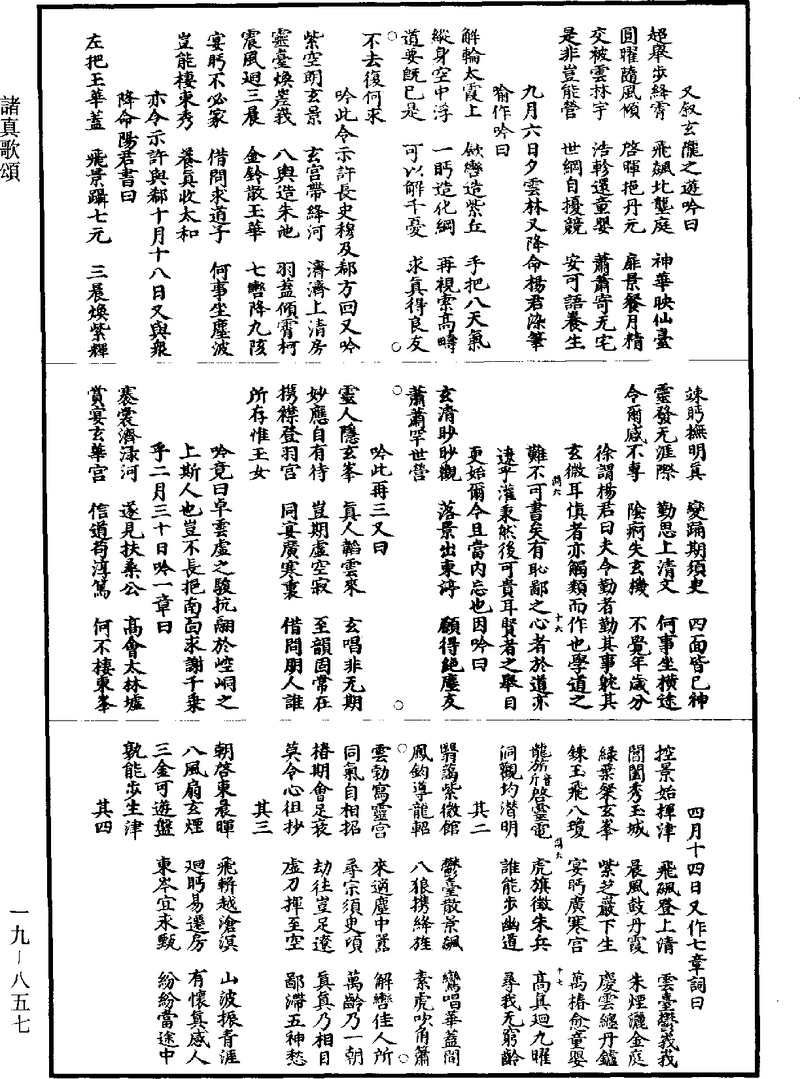 又叙玄隴之遊吟曰
超舉步絳霄　飛飆北壟庭　神華映仙臺
圓曜隨風傾　啓暉挹丹元　扉景餐月精
交被雲林宇　浩軫還童嬰　蕭蕭寄无宅
是非豈能營　世網自擾競　安可語養生
九月六日夕雲林又降命楊君染筆
喻作吟曰
解輪太霞上　歘轡造紫丘　手把八天氣
縱身空中浮　一眄造化綱　再視索高疇
道要既已是　可以解千憂　求真得良友
不去復何求
吟此令示許長史穆及郄方回又吟
紫空朗玄景　玄宫帶絳河　濟濟上清房
靈臺煥嵳我　八輿造朱池　羽蓋傾霄柯
震風迴三晨　金鈴散玉華　七轡降九陔
宴眄不必家　借問求道子　何事坐塵波
豈能棲東秀　養真收太和
亦令示許與郄十月十八日又與衆
降命陽君書曰
左把玉華蓋　飛景躡七元　三晨煥紫輝
竦眄撫明真　變踊期須臾　四面皆已神
靈發无涯際　勤思上清文　何事坐横途
令爾感不專　陰痾失玄機　不覺年歲分
徐謂楊君曰夫今勤者勤其事耽其
玄微耳慎者亦觸類而作也學道之
難不可書矣有恥鄙之心者於道亦
遼乎灌秉然後可貴耳賢者之舉目
更始爾今且當内忘也因吟曰
玄清眇眇觀　落景出東渟　願得絶塵友
蕭蕭罕世營
吟此再三又曰
靈人隱玄峯　真人韜雲來　玄唱非无期
妙應自有待　豈期虚空寂　至韻固常在
携襟登羽宫　同宴廣寒裏　借問朋人誰
所存惟玉女
吟竟曰卓雲虚之駿抗翮於崆峒之
上斯人也豈不長挹南面永謝千乘
乎二月三十日吟一章曰
褰裳濟淥河　遂見扶桑公　高會太林墟
賞宴玄華宫　信道苟淳篤　何不棲東峯
四月十四日又作七章詞曰
控景始揮津　飛飆登上清　雲臺鬱義我
閶闔秀玉城　晨風鼓丹霞　朱煙灑金庭
緑葉粲玄峯　紫芝巖下生　慶雲纏丹鑪
鍊玉飛八瓊　宴眄廣寒宫　萬椿愈童嬰
龍旂啓靈電　虎旗徵朱兵　高真迴九曜
洞觀均潜明　誰能步幽道　尋我无窮齡
其二
翳藹紫微館　鬱臺散景飆　鸞唱華蓋間
鳳鈞導龍軺　八狼携絳旌　素虎吹角簫
雲勃寫靈宫　來適塵中嚣　解轡佳人所
同氣自相招　尋宗須臾頃　萬齡乃一朝
椿期會足衰　劫往豈足遼　真真乃相目
莫令心徂抄　虚刀揮至空　鄙滯五神愁
其三
朝啓東晨暉　飛軿越滄溟　山波振青涯
八風扇玄煙　迴眄易遷房　有懷真感人
三金可遊盤　東岑宜永甄　紛紛當途中
孰能步生津
其四
諸真歌頌
一九－八五七